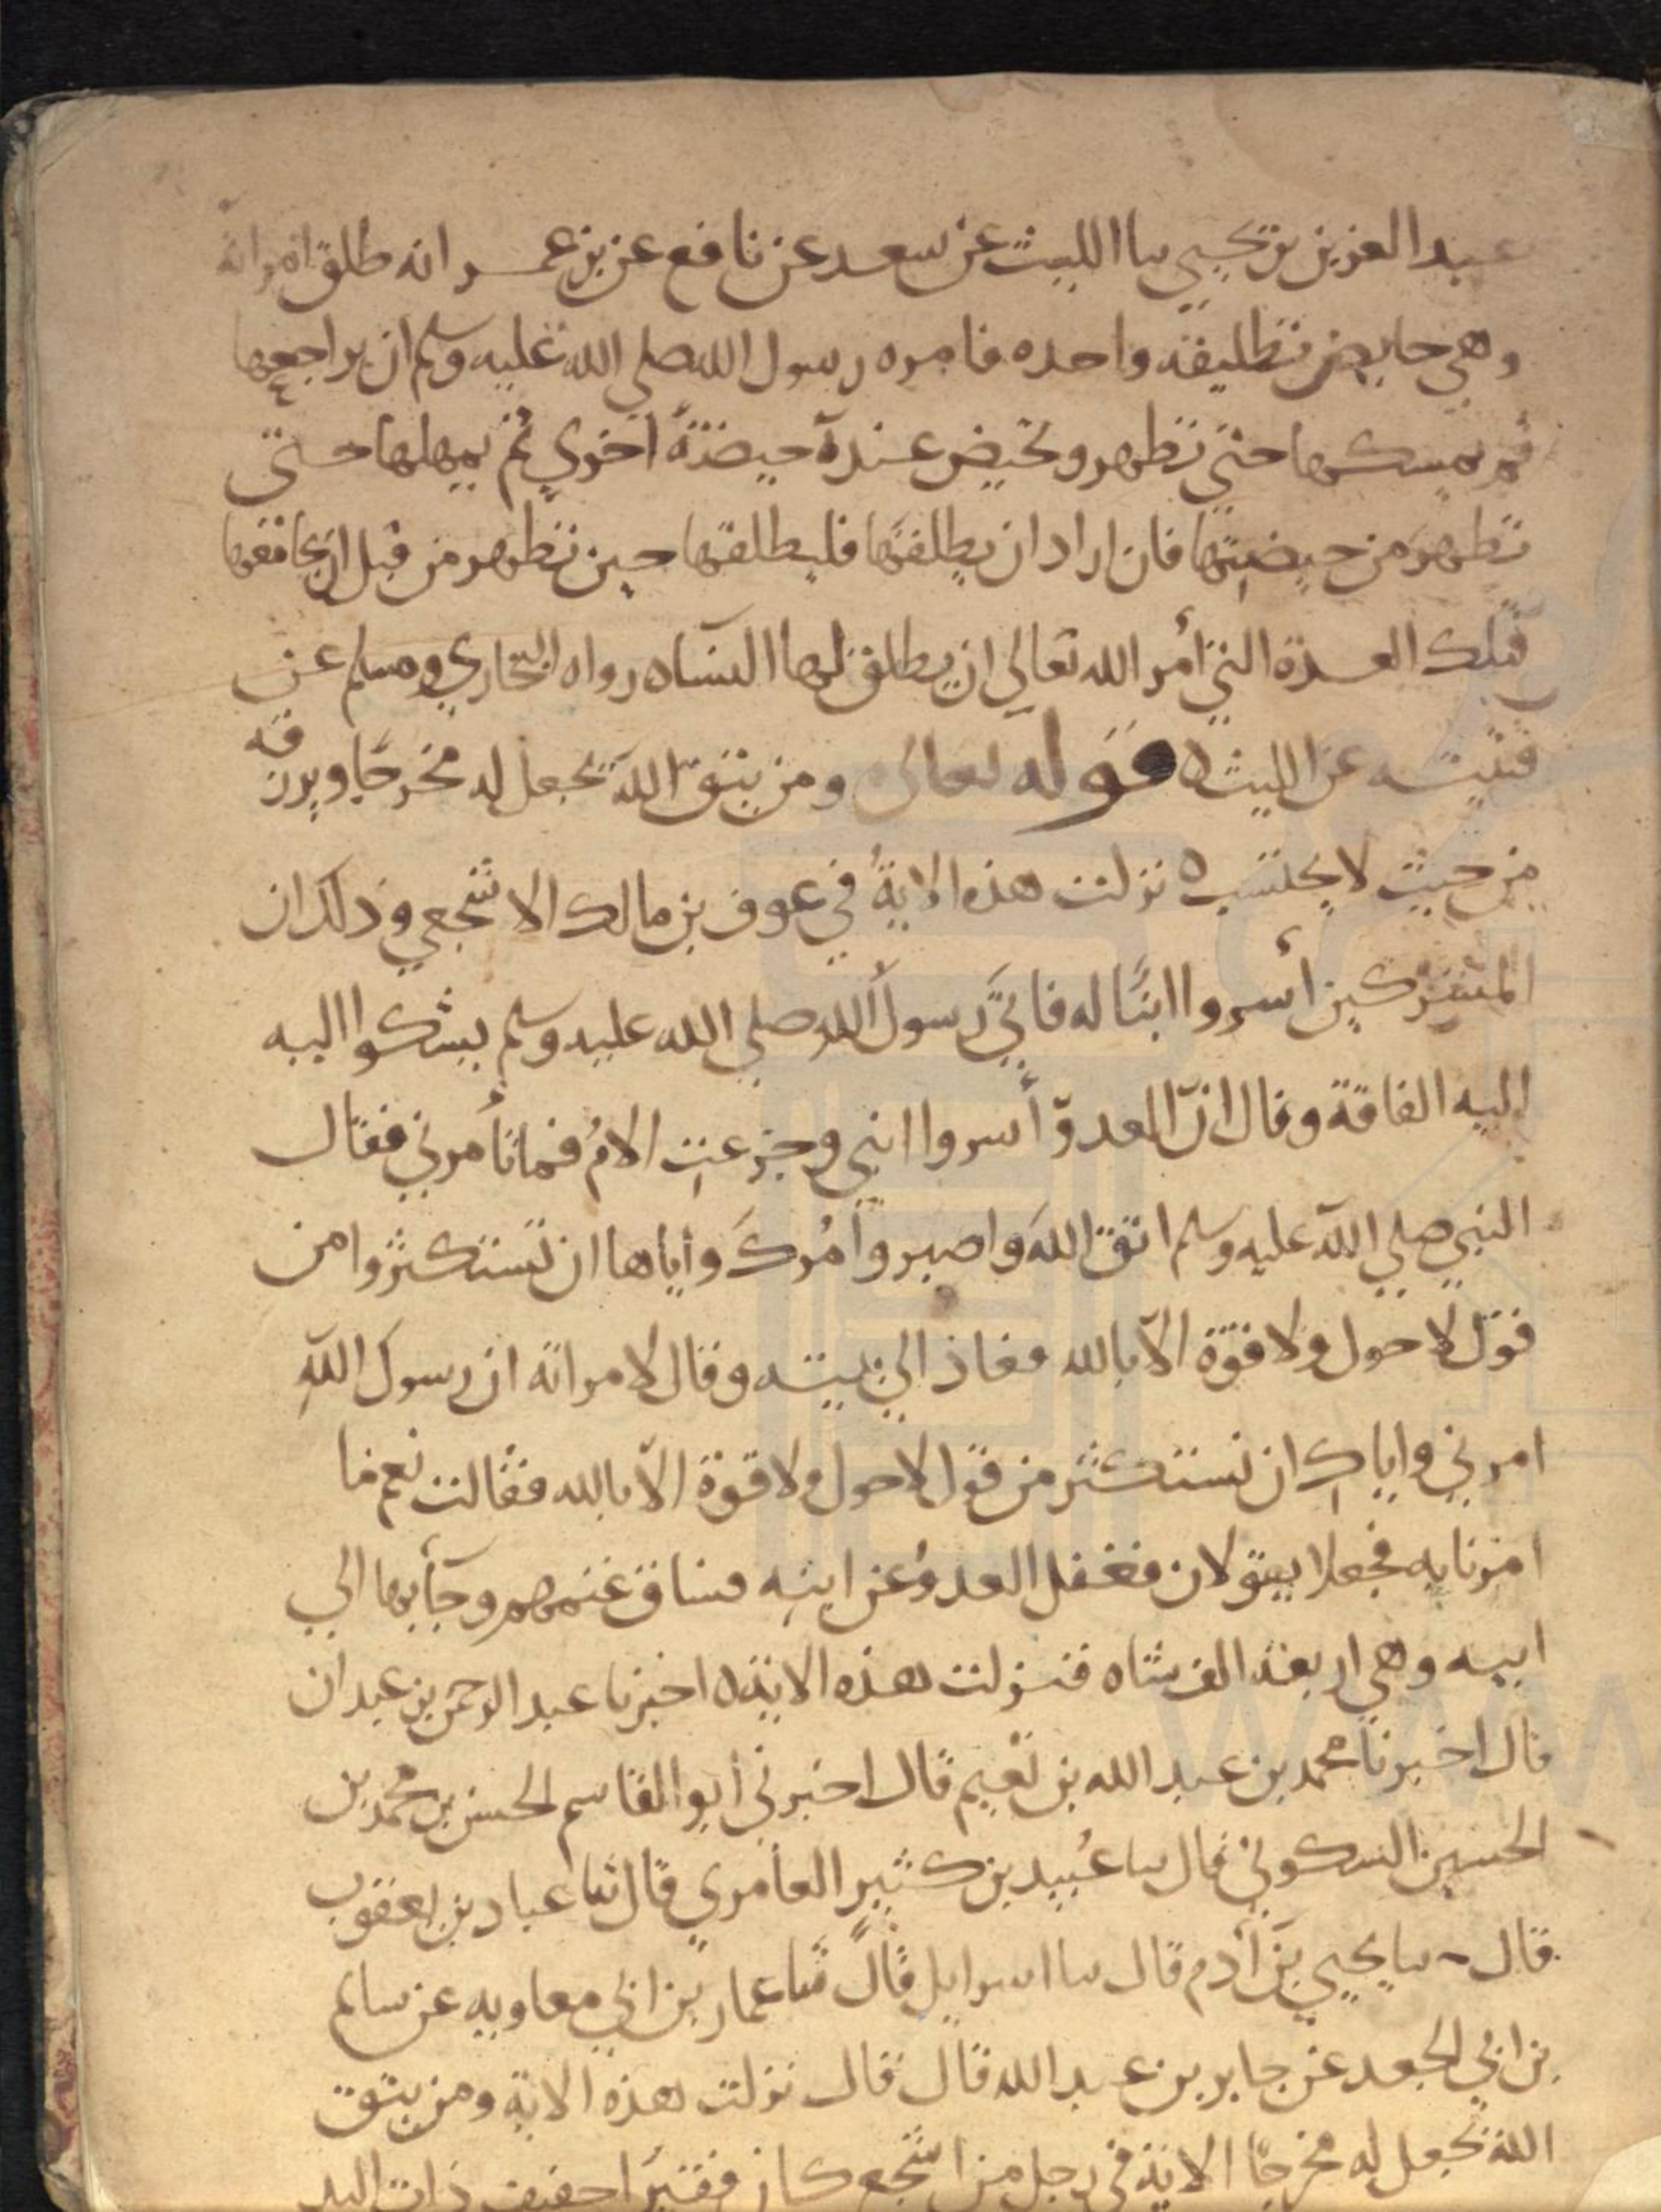 عبد العزيز بن يحيي سا الليث عن سعد عن نافع عن بن عمر انه طلق امراته
وهي حايض تطليقه واحده فامره رسول الله صلي الله عليه وسلم ان يراجعها
ثم يمسكها حتي تطهر وتحيض عنده حيضة اخري ثم يمهلها حتي
تطهر من حيضتها فان اراد ان يطلقها فليطلقها حين تطهر من قبل ان يجامعها
فتلك العدة التي أمر الله تعالي ان يطلق لها النساء رواه البخاري ومسلم عن
قتيبه عن الليث ه قوله تعالى ومن يتق الله يجعل له مخرجا ويرزقه
من حيث لا يحتسب ه نزلت هذه الاية في عوف بن مالك الاشجعي وذلك ان
المشركين أسروا ابنا له فاتي رسول الله صلي الله عليه وسلم يشكوا اليه
اليه الفاقة وقال ان العدو أسروا ابني وجزعت الام فما تأمرني فقال
النبي صلي الله عليه وسلم اتق الله واصبر وآمرك واياها ان تستكثروا من
قول لا حول ولا قوة الا بالله فعاد الي بيته وقال لامراته ان رسول الله
امرني واياك ان نستكثر من قول لا حول ولا قوة الا بالله فقالت نعم ما
امرنا به فجعلا يقولان فغفل العدو عن ابنه فساق غنمهم وجآ بها الي
ابيه وهي اربعة الف شاه فنزلت هذه الاية ه اخبرنا عبد الرحمن بن عبدان
قال اخبرنا محمد بن عبد الله بن نعيم قال اخبرني أبو القاسم الحسن بن محمد بن
الحسين السكوني قال سا عُبيد بن كثير العامري قال ثنا عباد بن يعقوب
قال سا يحيي بن أدم قال سا اسرايل قال ثنا عمار بن ابي معاويه عن سالم
بن ابي الجعد عن جابر بن عبد الله قال قال نزلت هذه الاية ومن يتق
الله يجعل له مخرجا الاية في رجل من اشجع كان فقيرا خفيف ذات اليد